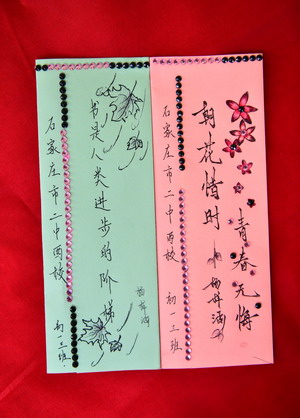 书是人类进步的阶梯
石家庄市二中西校 初一三班
朝花惜时
青春无悔
石家庄市二中西校 初一三班